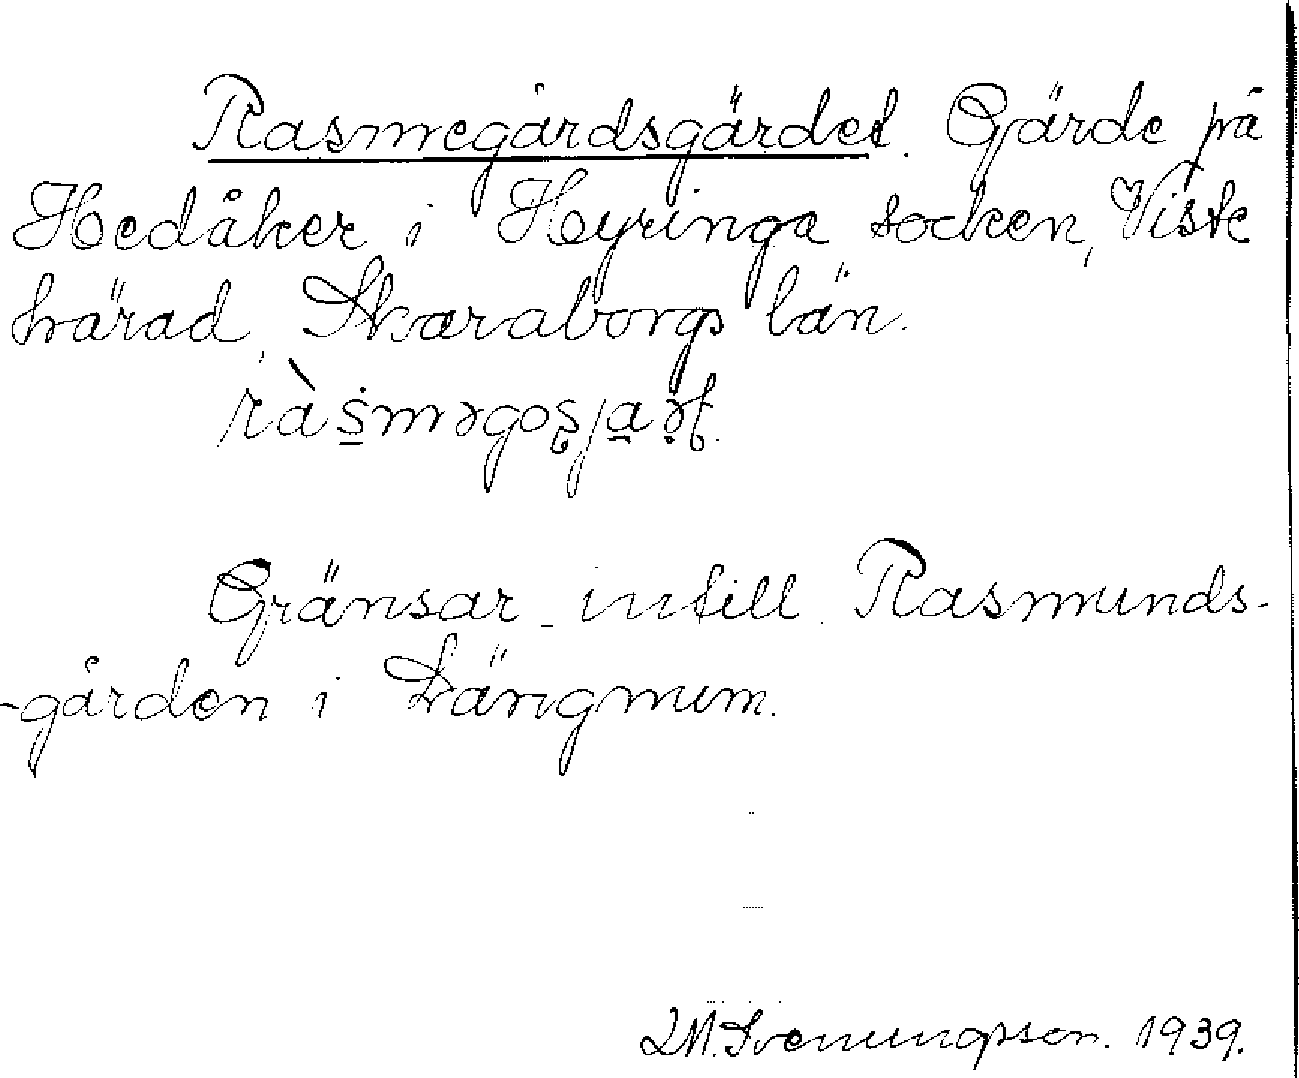 Rasmegårdsgärdet. Gärde på
Hedåker i Hyringa socken, Viste
härad, Skaraborgs län.
Gränsar intill Rasmunds-
-gården i Längnum.
M. Svenungsson. 1939.